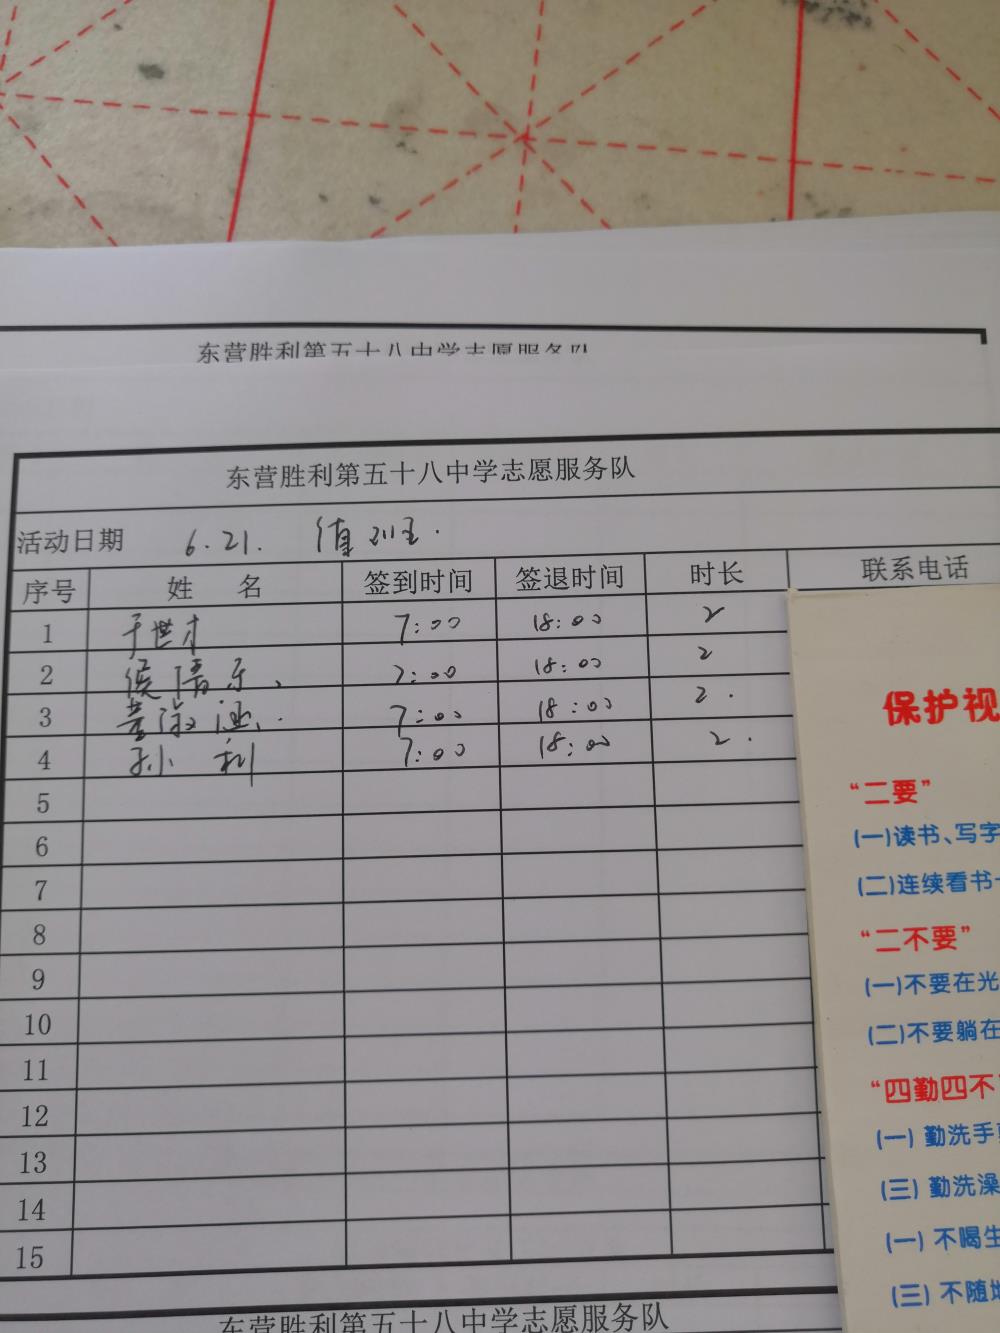 东营胜利第五十八中学志愿服务队
东营胜利第五十八中学志愿服务队
活动日期 6.21. 值班.
序号 姓 名 签到时间 签退时间 时长 联系电话
1 于世才 7:00 18:00 2
2 侯 乐 7:00 18:00 2
3 董淑涵 7:00 18:00 2.
4 孙 利 7:00 18:00 2.
5
6
7
8
9
10
11
12
13
14
15
东营胜利第五十八中学志愿服务队
保护视
“二要”
(一)读书、写字
(二)连续看书一
“二不要”
(一)不要在光
(二)不要躺在
“四勤四不
(一) 勤洗手
(三) 勤洗澡
(一) 不喝生
(三) 不随地